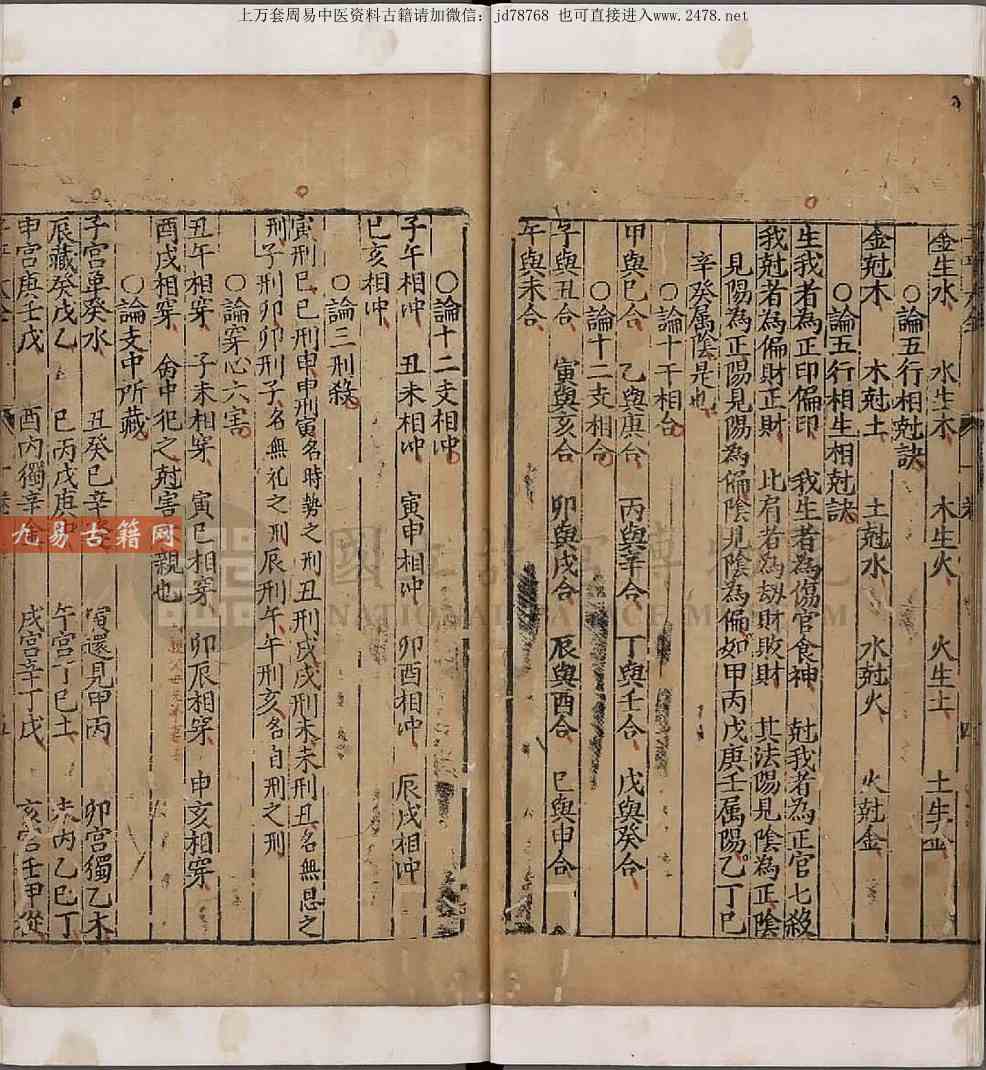 上万套周易中医资料古籍请加微信：jd78768 也可直接进入www.2478.net
金生水 水生木 木生火 火生土 土生金
○論五行相尅訣
金尅木 木尅土 土尅水 水尅火 火尅金
○論五行相生相尅訣
生我者為正印偏印 我生者為傷官食神 尅我者為正官七殺
我尅者為偏財正財 比肩者為刼財敗財 其法陽見陰為正陰
見陽為正陽見陽為偏陰見陰為偏如甲丙戊庚壬属陽乙丁巳
辛癸属陰是也
○論十干相合
甲與巳合 乙與庚合 丙與辛合 丁與壬合 戊與癸合
○論十二支相合
子與丑合 寅與亥合 卯與戌合 辰與酉合 巳與申合
午與未合
○論十二支相冲
子午相冲 丑未相冲 寅申相冲 卯酉相冲 辰戌相冲
巳亥相冲
○論三刑殺
寅刑巳巳刑申申刑寅名時勢之刑丑刑戌戌刑未未刑丑名無恩之
刑子刑卯卯刑子名無礼之刑辰刑午午刑亥名自刑之刑
○論穿心六害
丑午相穿 子未相穿 寅巳相穿 卯辰相穿 申亥相穿
酉戌相穿 命中犯之尅害親也
○論支中所藏
子宮单癸水 丑癸巳辛 寅還見甲丙 卯宮獨乙木
辰藏癸戊乙 巳丙戊庚 午宮丁巳土 未丙乙巳丁
申宮庚壬戊 酉内獨辛金 戌宮辛丁戊 亥宮壬甲從
九易古籍网
國立故宮博物院
NATIONAL PALACE MUSEUM